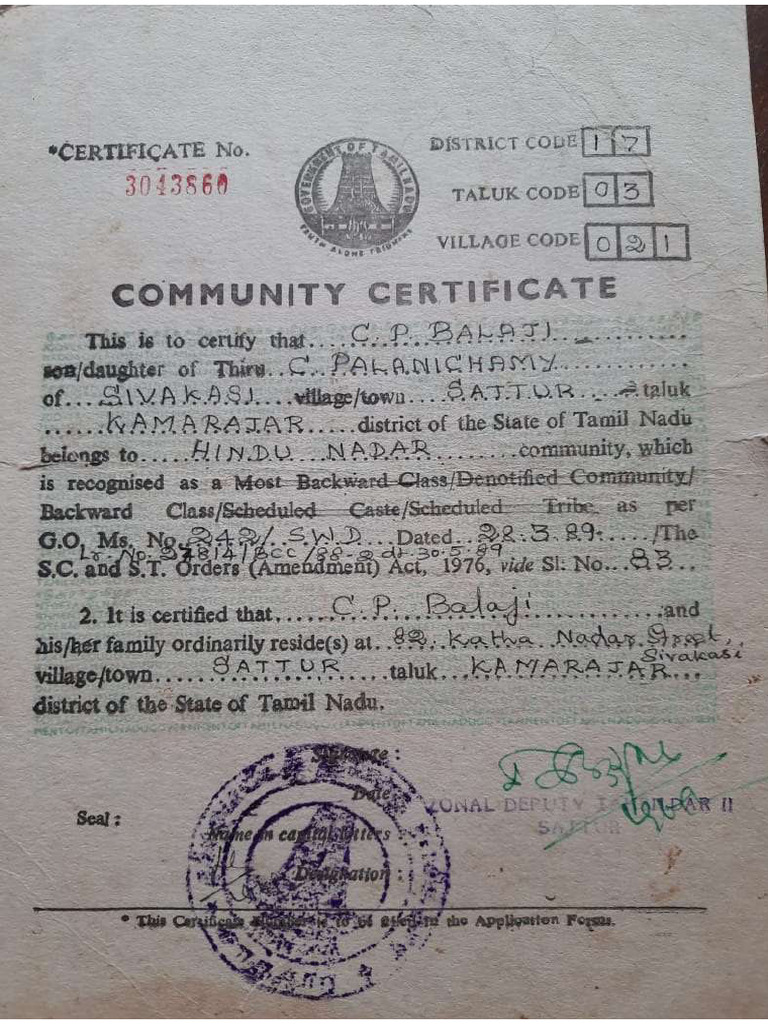 *CERTIFICATE No.
3043860
GOVERNMENT OF TAMILNADU
TRUTH ALONE TRIUMPHS
DISTRICT CODE 17
TALUK CODE 03
VILLAGE CODE 021
COMMUNITY CERTIFICATE
This is to certify that....C. P. BALAJI............
son/daughter of Thiru..C. PALANICHAMY............
of....SIVAKASI....village/town....SATTUR....taluk
......KAMARAJAR.....district of the State of Tamil Nadu
belongs to.....HINDU NADAR..........community, which
is recognised as a Most Backward Class/Denotified Community/
Backward Class/Scheduled Caste/Scheduled Tribe as per
G.O. Ms. No. 242/ S.W.D...Dated..28.3.89...../The
Lr. No. 37814/BCC/88-2 dt. 30.5.89
S.C. and S.T. Orders (Amendment) Act, 1976, vide Sl. No...83..
2. It is certified that.......C. P. Balaji..............and
his/her family ordinarily reside(s) at..82, Katha Nadar Street,
Sivakasi
village/town.......SATTUR.......taluk....KAMARAJAR...
district of the State of Tamil Nadu.
Signature :
Date
ZONAL DEPUTY TAHSILDAR II
SATTUR
Seal :
Name in capital letters
Designation :
* This Certificate Number is to be filled in the Application Forms.